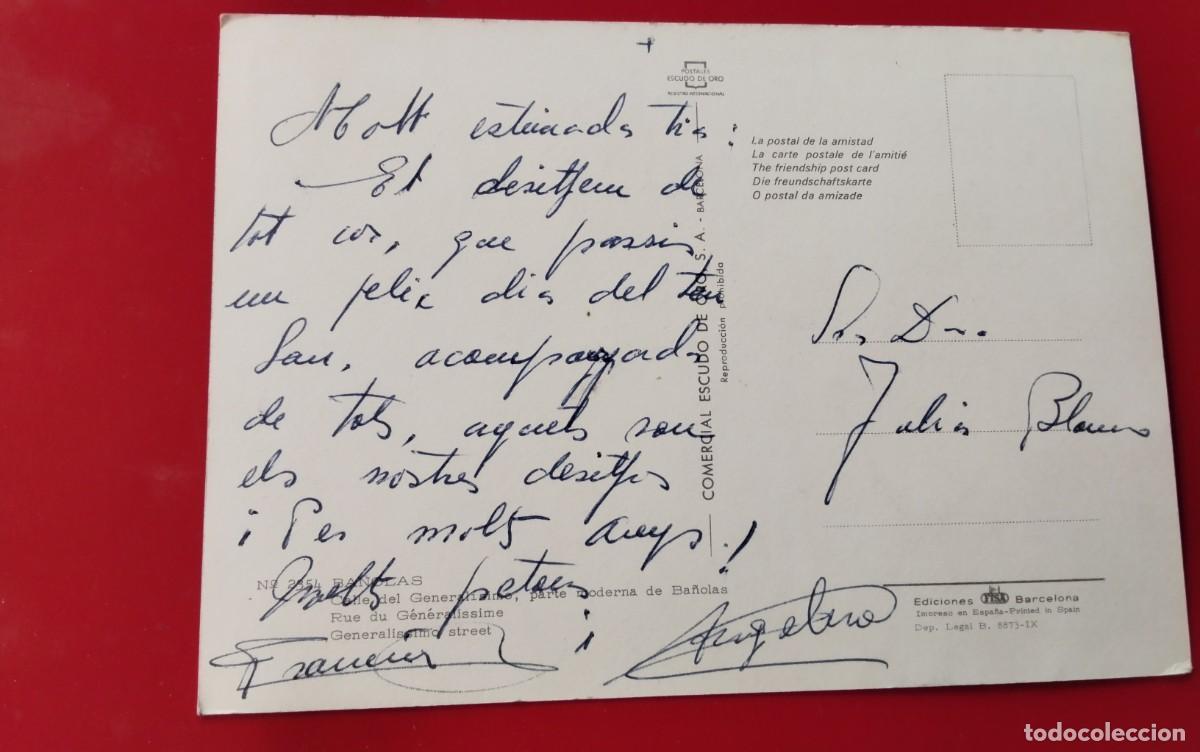 Molt estimada tia:
Et desitjem de
tot cor, que passis
un feliç dia del teu
San, acompanyada
de tots, aquets son
els nostres desitjos
¡Per molts anys!
Molts petons
Francisca i Angelina
Nº 2354 BAÑOLAS
Calle del Generalísimo, parte moderna de Bañolas
Rue du Généralissime
Generalissimo street
POSTALES
ESCUDO DE ORO
REGISTRO INTERNACIONAL
COMERCIAL ESCUDO DE ORO, S. A. - BARCELONA
Reproducción prohibida
La postal de la amistad
La carte postale de l'amitié
The friendship post card
Die freundschaftskarte
O postal da amizade
Sra Dna.
Julia Blanco
Ediciones FISA Barcelona
Impreso en España-Printed in Spain
Dep. Legal B. 8873-IX
todocoleccion